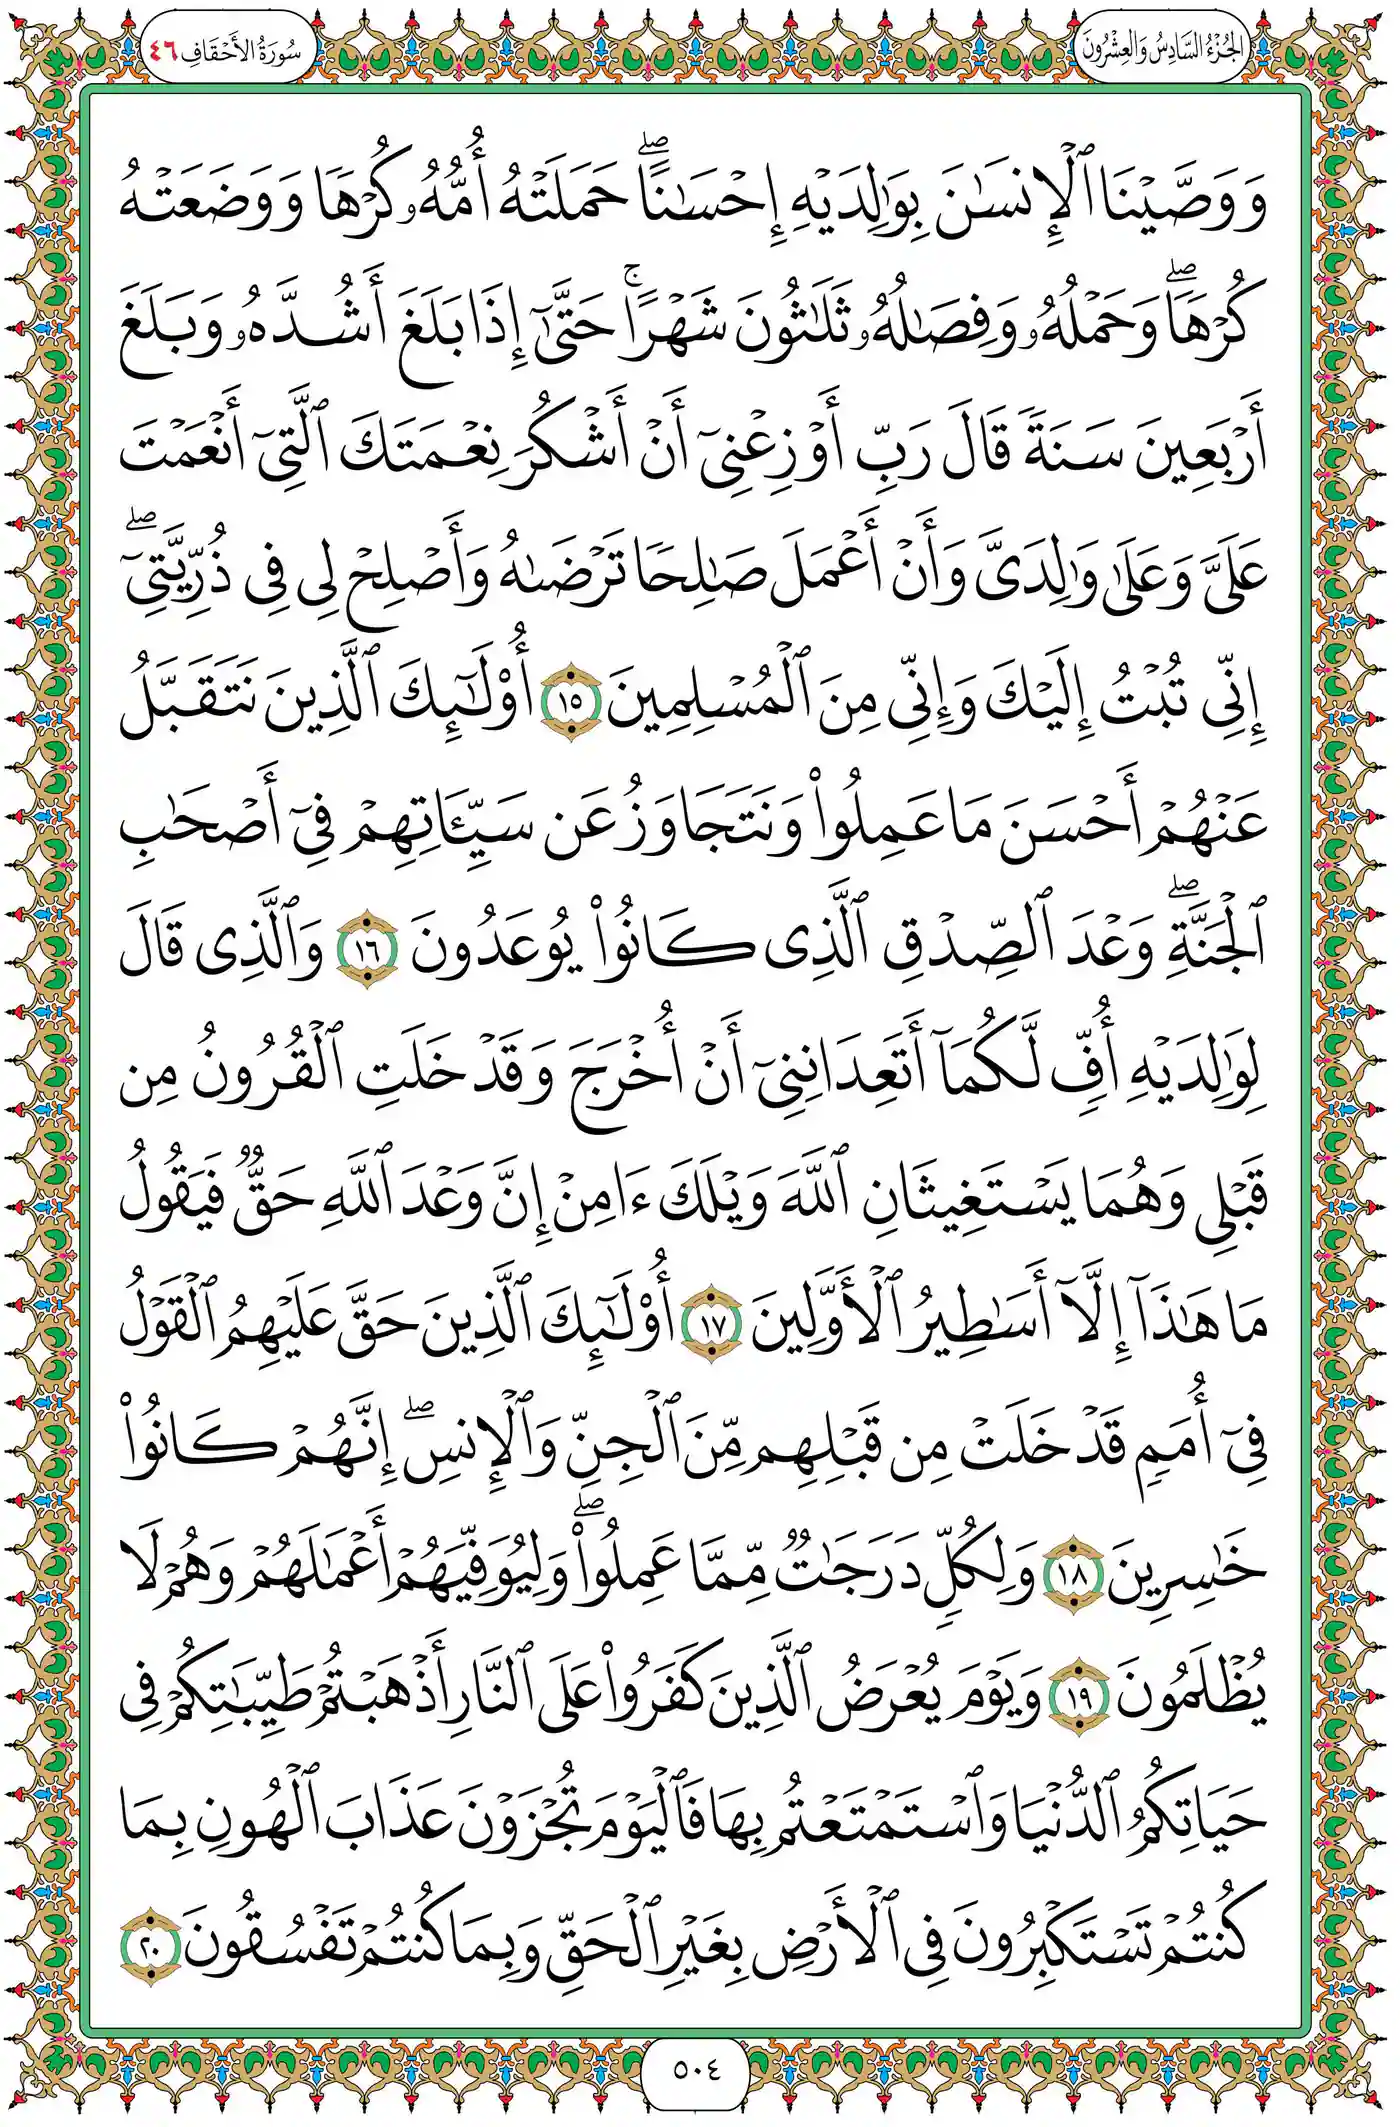 الجُزْءُ السَّادِسُ وَالعِشْرُونَ
سُورَةُ الأَحْقَافِ ٤٦
وَوَصَّيْنَا ٱلْإِنسَٰنَ بِوَٰلِدَيْهِ إِحْسَٰنًاۖ حَمَلَتْهُ أُمُّهُۥ كُرْهًا وَوَضَعَتْهُ
كُرْهًاۖ وَحَمْلُهُۥ وَفِصَٰلُهُۥ ثَلَٰثُونَ شَهْرًاۚ حَتَّىٰٓ إِذَا بَلَغَ أَشُدَّهُۥ وَبَلَغَ
أَرْبَعِينَ سَنَةً قَالَ رَبِّ أَوْزِعْنِىٓ أَنْ أَشْكُرَ نِعْمَتَكَ ٱلَّتِىٓ أَنْعَمْتَ
عَلَىَّ وَعَلَىٰ وَٰلِدَىَّ وَأَنْ أَعْمَلَ صَٰلِحًا تَرْضَىٰهُ وَأَصْلِحْ لِى فِى ذُرِّيَّتِىٓۖ
إِنِّى تُبْتُ إِلَيْكَ وَإِنِّى مِنَ ٱلْمُسْلِمِينَ ١٥ أُو۟لَٰٓئِكَ ٱلَّذِينَ نَتَقَبَّلُ
عَنْهُمْ أَحْسَنَ مَا عَمِلُوا۟ وَنَتَجَاوَزُ عَن سَيِّـَٔاتِهِمْ فِىٓ أَصْحَٰبِ
ٱلْجَنَّةِۖ وَعْدَ ٱلصِّدْقِ ٱلَّذِى كَانُوا۟ يُوعَدُونَ ١٦ وَٱلَّذِى قَالَ
لِوَٰلِدَيْهِ أُفٍّ لَّكُمَآ أَتَعِدَانِنِىٓ أَنْ أُخْرَجَ وَقَدْ خَلَتِ ٱلْقُرُونُ مِن
قَبْلِى وَهُمَا يَسْتَغِيثَانِ ٱللَّهَ وَيْلَكَ ءَامِنْ إِنَّ وَعْدَ ٱللَّهِ حَقٌّ فَيَقُولُ
مَا هَٰذَآ إِلَّآ أَسَٰطِيرُ ٱلْأَوَّلِينَ ١٧ أُو۟لَٰٓئِكَ ٱلَّذِينَ حَقَّ عَلَيْهِمُ ٱلْقَوْلُ
فِىٓ أُمَمٍ قَدْ خَلَتْ مِن قَبْلِهِم مِّنَ ٱلْجِنِّ وَٱلْإِنسِۖ إِنَّهُمْ كَانُوا۟
خَٰسِرِينَ ١٨ وَلِكُلٍّ دَرَجَٰتٌ مِّمَّا عَمِلُوا۟ۖ وَلِيُوَفِّيَهُمْ أَعْمَٰلَهُمْ وَهُمْ لَا
يُظْلَمُونَ ١٩ وَيَوْمَ يُعْرَضُ ٱلَّذِينَ كَفَرُوا۟ عَلَى ٱلنَّارِ أَذْهَبْتُمْ طَيِّبَٰتِكُمْ فِى
حَيَاتِكُمُ ٱلدُّنْيَا وَٱسْتَمْتَعْتُم بِهَا فَٱلْيَوْمَ تُجْزَوْنَ عَذَابَ ٱلْهُونِ بِمَا
كُنتُمْ تَسْتَكْبِرُونَ فِى ٱلْأَرْضِ بِغَيْرِ ٱلْحَقِّ وَبِمَا كُنتُمْ تَفْسُقُونَ ٢٠
٥٠٤